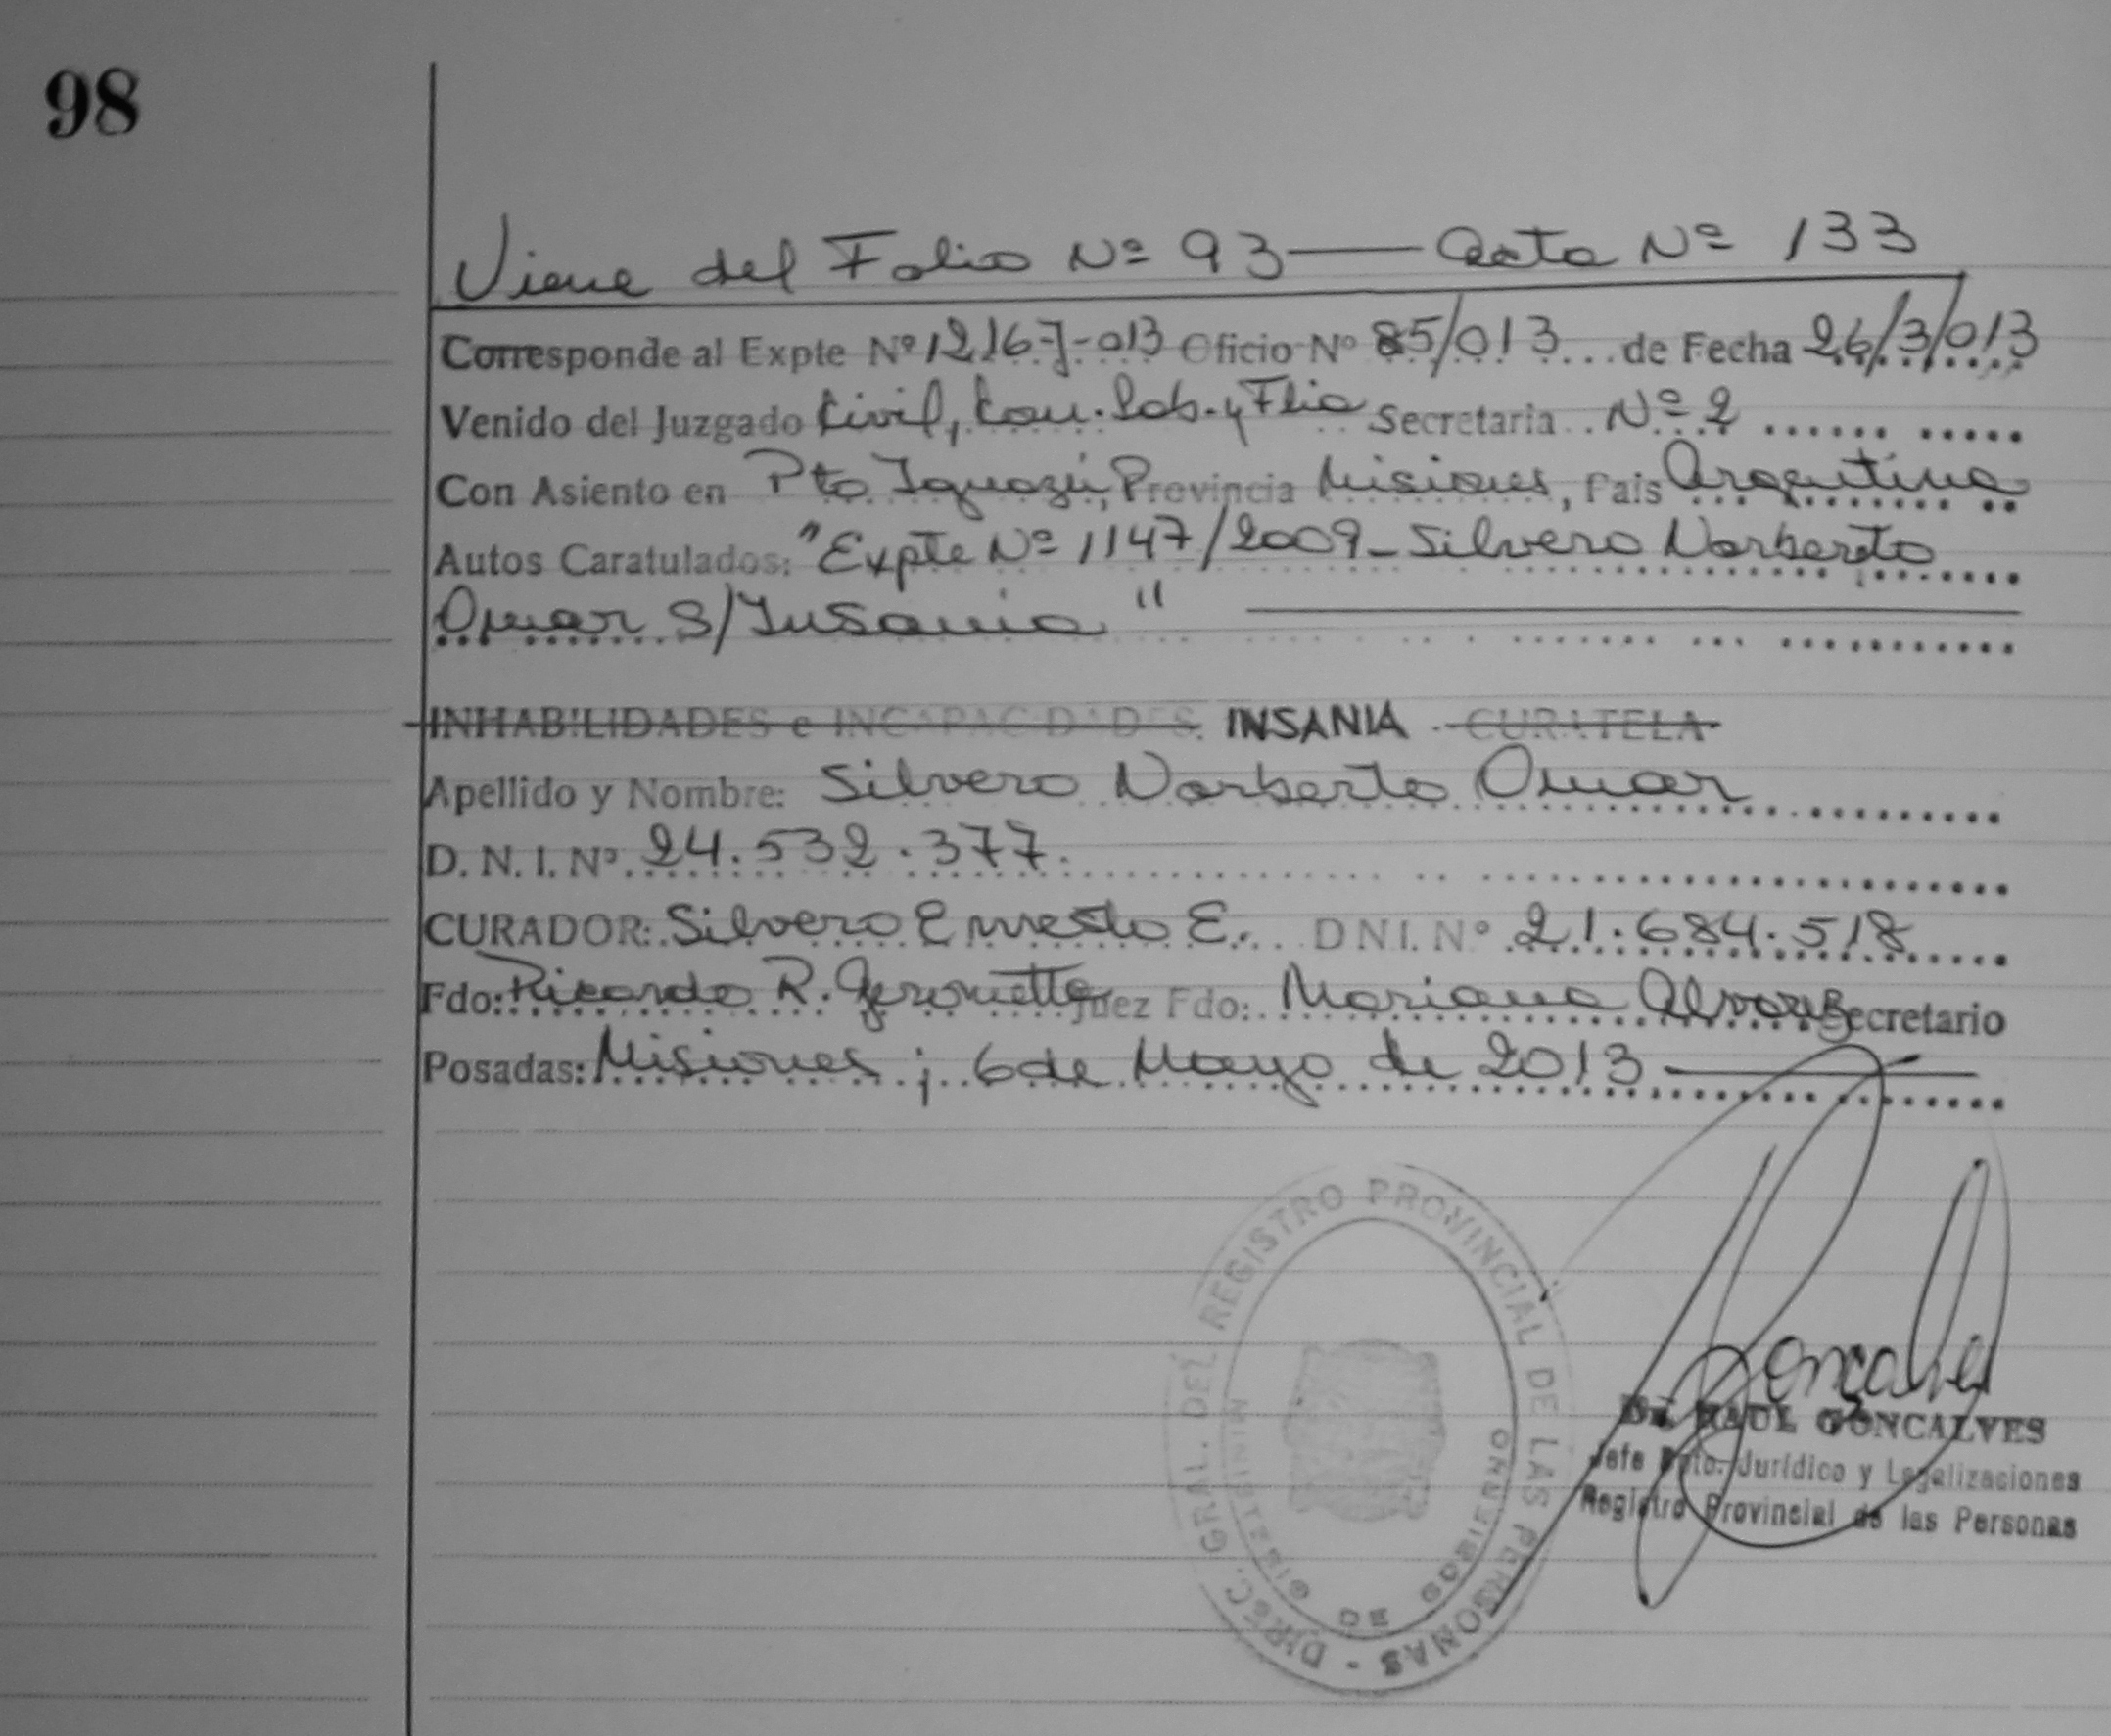 98
Viene del Folio Nº 93 — Acta Nº 133
Corresponde al Expte Nº 1216-J-013 Oficio Nº 85/013 de Fecha 26/3/013
Venido del Juzgado Civil, Com. Lab. y Flia Secretaria Nº 2
Con Asiento en Pto Iguazú, Provincia Misiones, Pais Argentina
Autos Caratulados: "Expte Nº 1147/2009 - Silvero Norberto
Omar S/Insania"
INHABILIDADES e INCAPACIDADES INSANIA - CURATELA
Apellido y Nombre: Silvero Norberto Omar
D. N. I. Nº 24.532.377.
CURADOR: Silvero Ernesto E. DNI. Nº 21.684.518
Fdo: Ricardo R. Geronetto Juez Fdo: Mariana Secretario
Posadas: Misiones; 6 de Mayo de 2013
DIRECC. GRAL. DEL REGISTRO PROVINCIAL DE LAS PERSONAS -
MINISTERIO DE GOBIERNO
Goncalves
Dr. RAUL GONCALVES
Jefe Dpto. Jurídico y Legalizaciones
Registro Provincial de las Personas